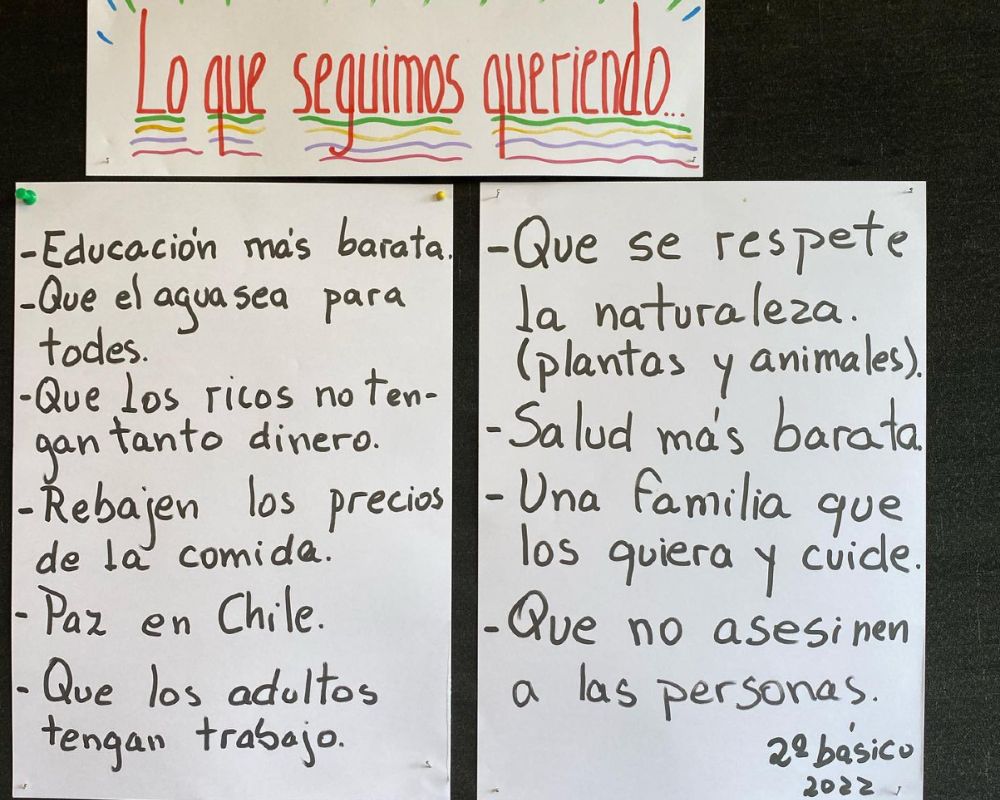 Lo que seguimos queriendo...
-Educación más barata.
-Que el agua sea para
todes.
-Que los ricos no ten-
gan tanto dinero.
-Rebajen los precios
de la comida.
- Paz en Chile.
- Que los adultos
tengan trabajo.
-Que se respete
la naturaleza.
(plantas y animales).
-Salud más barata.
- Una familia que
los quiera y cuide.
-Que no asesinen
a las personas.
2º básico
2022